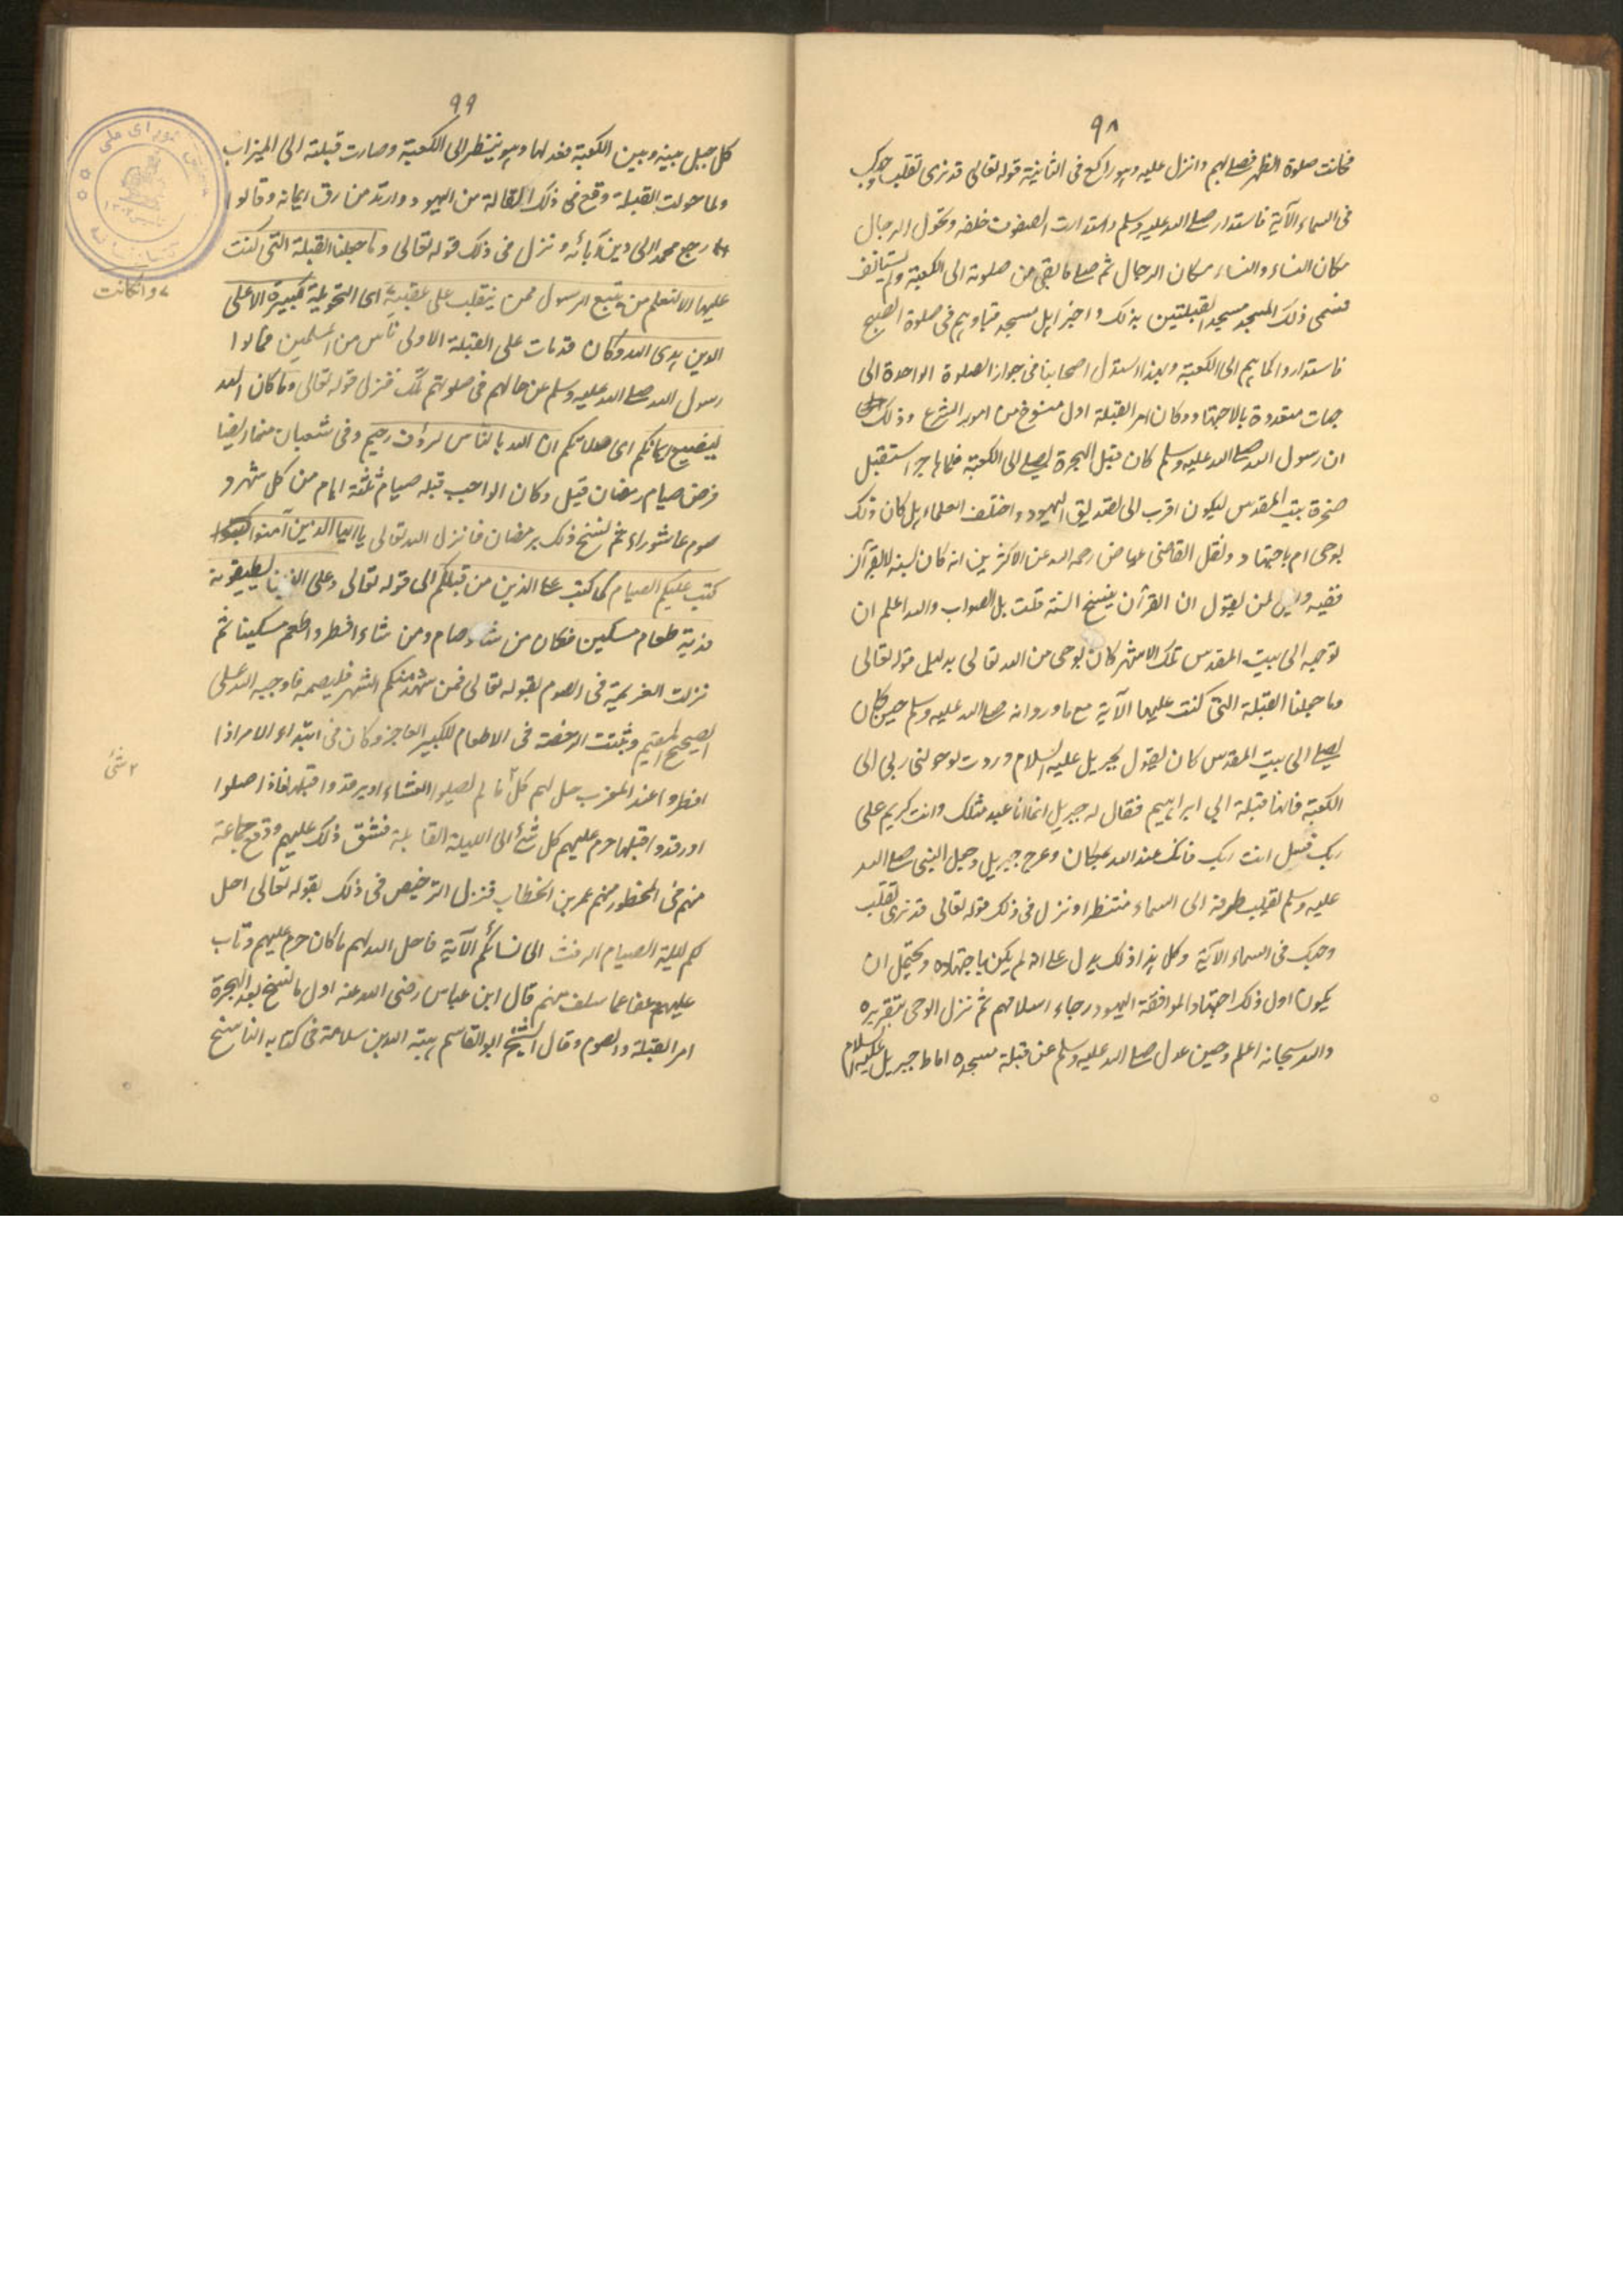 ٩٨
فكانت صلوة الظهر فصلى بهم وانزل عليه وهو راكع فى الثانية قوله تعالى قد نرى تقلب وجهك
فى السماء الآية فاستدار صلى الله عليه وسلم واستدارت الصفوف خلفه وتحول الرجال
مكان النساء والنساء مكان الرجال ثم صلى ما بقى من صلوته الى الكعبة ولم يستأنف
فسمى ذلك المسجد مسجد القبلتين بذلك واخبر اهل مسجد قبا وهم فى صلوة الصبح
فاستداروا كما هم الى الكعبة وبهذا استدل اصحابنا فى جواز الصلوة الواحدة الى
جهات متعددة بالاجتهاد وكان امر القبلة اول منسوخ من امور الشرع وذلك
ان رسول الله صلى الله عليه وسلم كان قبل الهجرة يصلى الى الكعبة فلما هاجر استقبل
صخرة بيت المقدس ليكون اقرب الى تصديق اليهود واختلف العلماء هل كان ذلك
بوحى ام باجتهاد ونقل القاضى عياض رحمه الله عن الاكثرين انه كان بسنة لا بقرآن
ففيه دليل لمن يقول ان القرآن ينسخ السنة قلت بل الصواب والله اعلم ان
توجهه الى بيت المقدس تلك الاشهر كان بوحى من الله تعالى بدليل قوله تعالى
وما جعلنا القبلة التى كنت عليها الآية مع ما ورد انه صلى الله عليه وسلم حين كان
يصلى الى بيت المقدس كان يقول لجبريل عليه السلام وددت لو حولنى ربى الى
الكعبة فانها قبلة ابى ابراهيم فقال له جبريل انما انا عبد مثلك وانت كريم على
ربك فسل انت ربك فانك عند الله بمكان وعرج جبريل وجعل النبى صلى الله
عليه وسلم يقلب طرفه الى السماء منتظرا ونزل فى ذلك قوله تعالى قد نرى تقلب
وجهك فى السماء الآية وكل هذا ذلك يدل على انه لم يكن باجتهاده ويحتمل ان
يكون اول ذلك اجتهادا لموافقة اليهود رجاء اسلامهم ثم نزل الوحى بتقريره
والله سبحانه اعلم وحين عدل صلى الله عليه وسلم عن قبلة مسجده اماط جبريل عليه السلام
٩٩
كل جبل بينه وبين الكعبة فعدلها وهو ينظر الى الكعبة وصارت قبلته الى الميزاب
ولما حولت القبلة وقع فى ذلك القالة من اليهود وارتد من رق ايمانه وقالوا
رجع محمد الى دين آبائه ونزل فى ذلك قوله تعالى وما جعلنا القبلة التى كنت
عليها الا لنعلم من يتبع الرسول ممن ينقلب على عقبيه اى التحويلة لكبيرة الا على
وان كانت
الذين هدى الله وكان قد مات على القبلة الاولى ناس من المسلمين فسألوا
رسول الله صلى الله عليه وسلم عن حالهم فى صلوتهم تلك فنزل قوله تعالى وما كان الله
ليضيع ايمانكم اى صلاتكم ان الله بالناس لرؤف رحيم وفى شعبان منها ايضا
فرض صيام رمضان قيل وكان الواجب قبله صيام ثلثة ايام من كل شهر و
صوم عاشوراء ثم نسخ ذلك برمضان فانزل الله تعالى يا ايها الذين آمنوا
كتب عليكم الصيام كما كتب على الذين من قبلكم الى قوله تعالى وعلى الذين يطيقونه
فدية طعام مسكين فكان من شاء صام ومن شاء افطر واطعم مسكينا ثم
نزلت العزيمة فى الصوم بقوله تعالى فمن شهد منكم الشهر فليصمه فاوجبه الله على
الصحيح المقيم وثبتت الرخصة فى الاطعام للكبير العاجز وكان فى ابتداء الامر اذا
شئ
افطروا عند المغرب حل لهم كل ما لم يصلوا العشاء او يرقدوا قبلها فاذا صلوا
او رقدوا قبلها حرم عليهم كل شئ الى الليلة القابلة فشق ذلك عليهم ووقع جماعة
منهم فى المحظور منهم عمر بن الخطاب فنزل الترخيص فى ذلك بقوله تعالى احل
لكم ليلة الصيام الرفث الى نسائكم الآية فاحل الله لهم ما كان حرم عليهم وتاب
عليهم وعفا عما سلف منهم قال ابن عباس رضى الله عنه اول ما نسخ بعد الهجرة
امر القبلة والصوم وقال الشيخ ابو القاسم هبة الله بن سلامة فى كتابه الناسخ